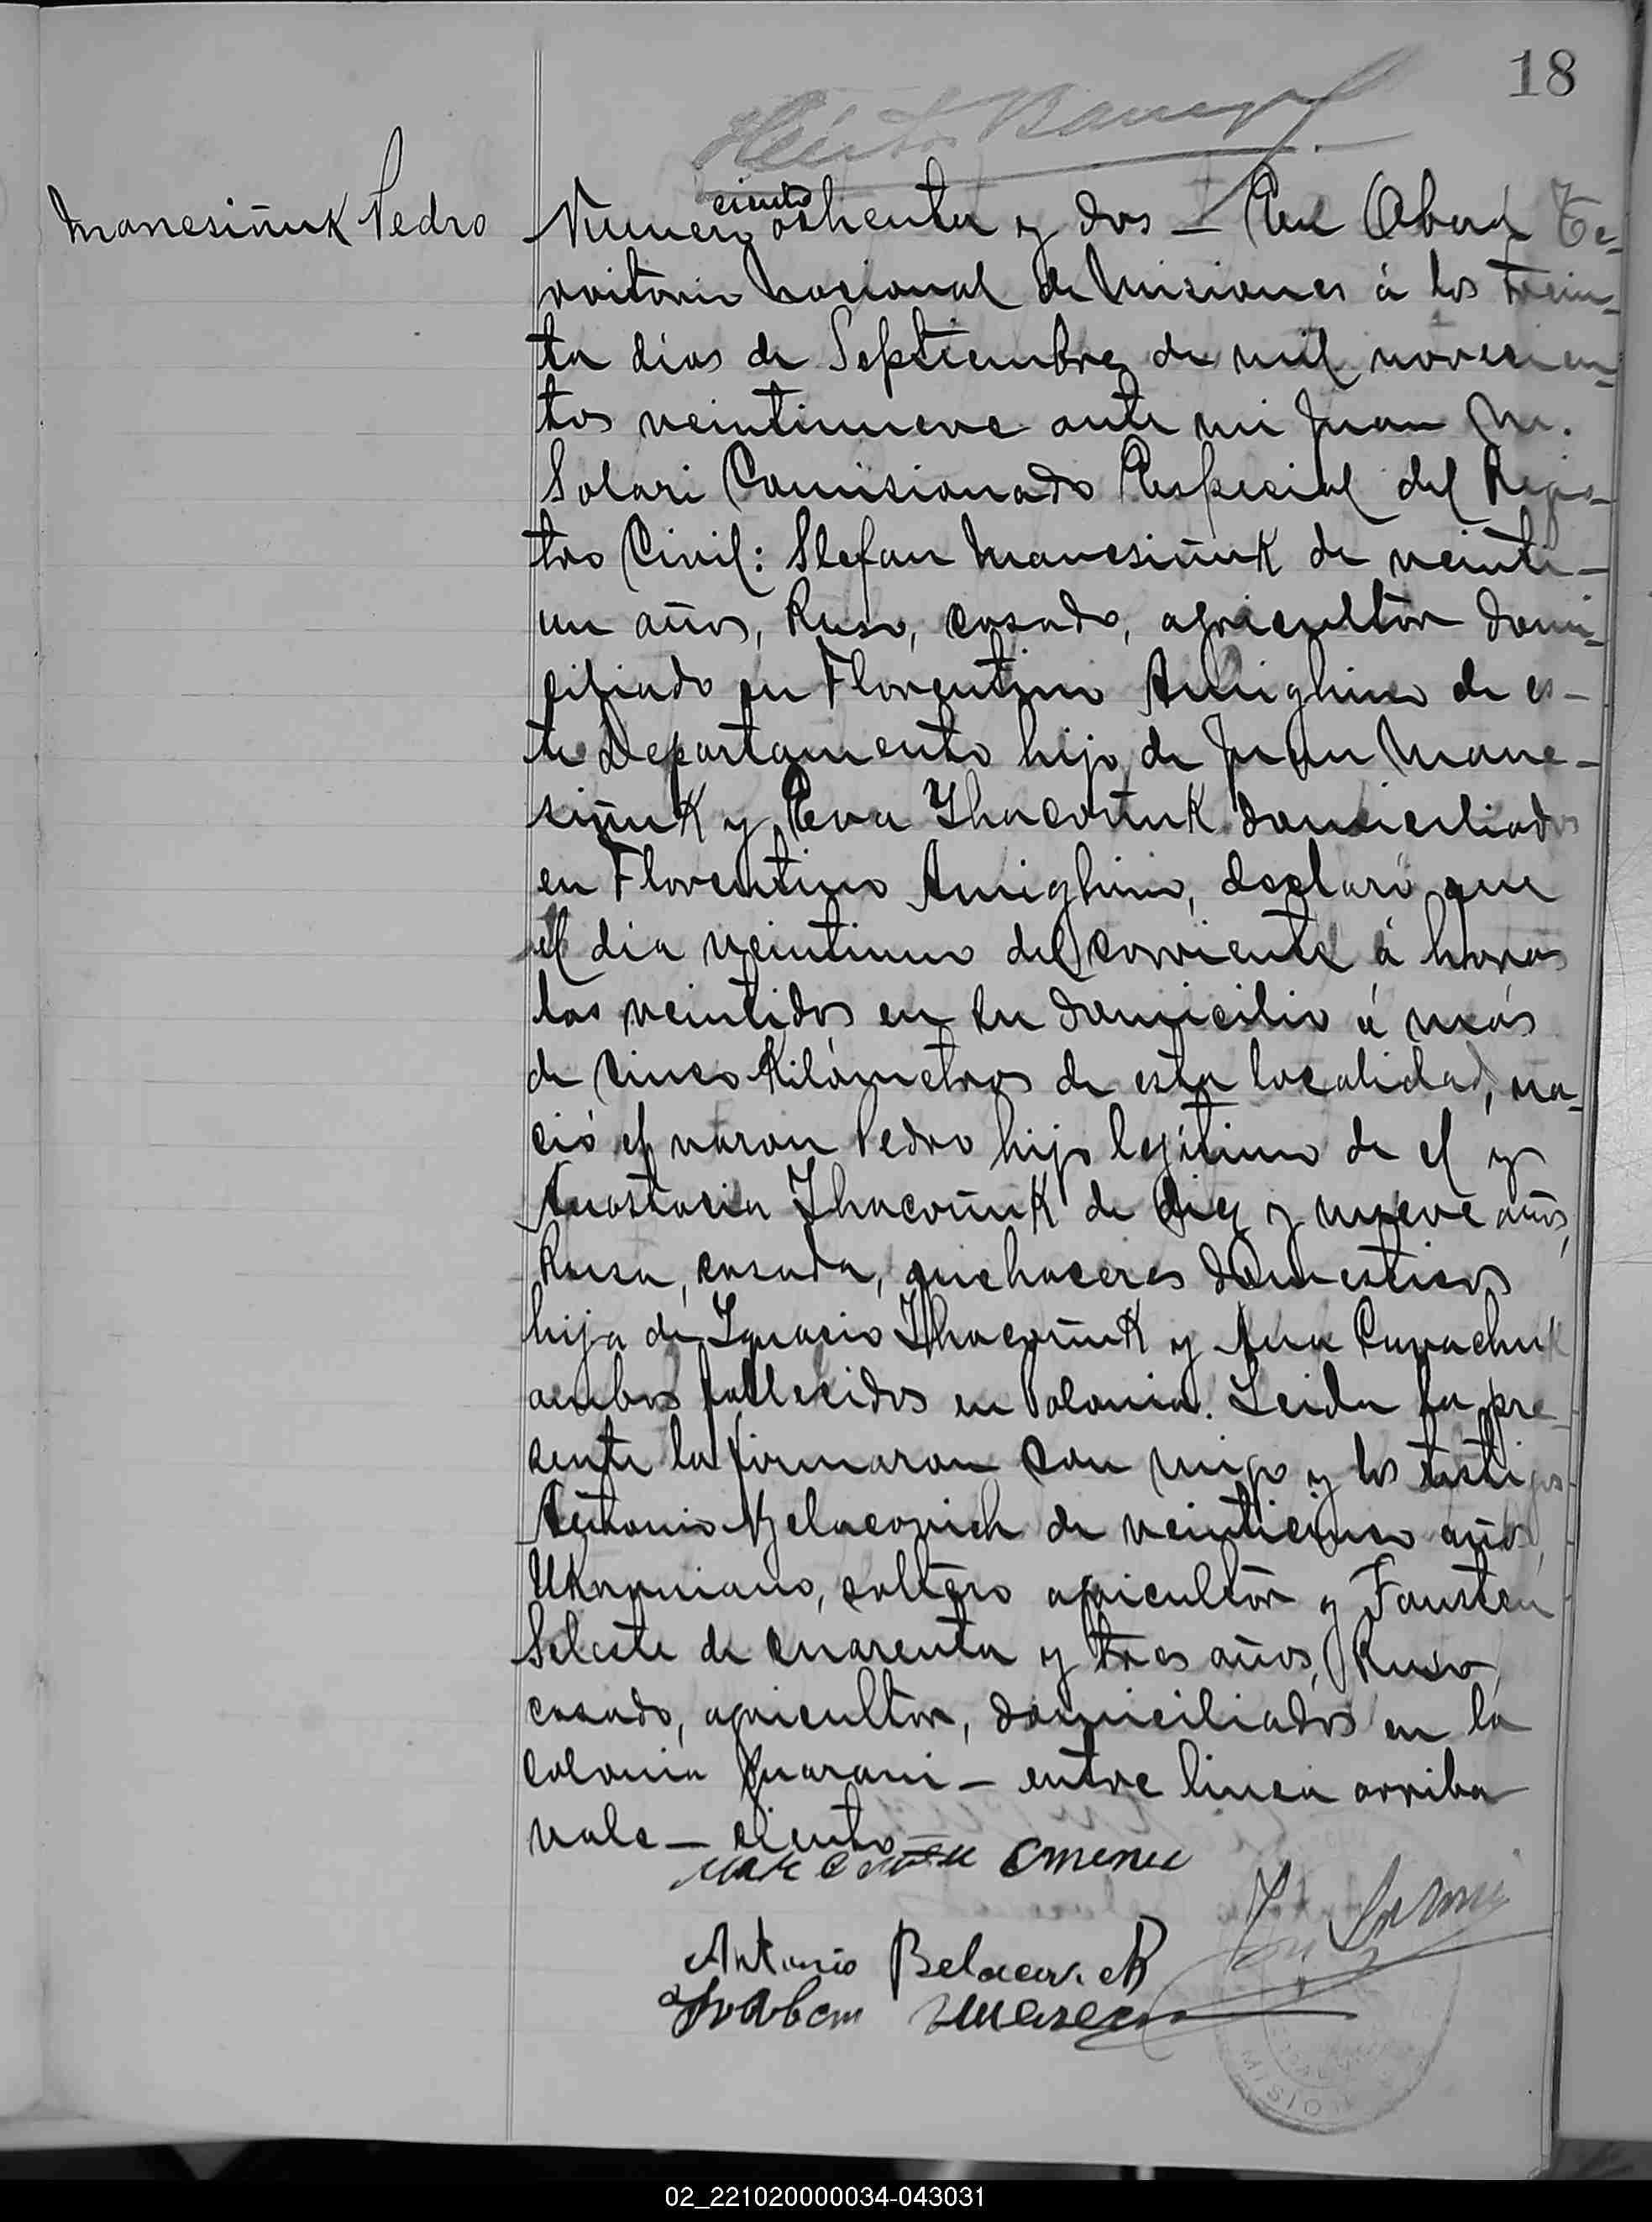 18
Manesiñuk Pedro
Numero ciento ochenta y dos — En Oberá Te-
rritorio Nacional de Misiones á los trein-
ta dias de Septiembre de mil novecien-
tos veintinueve ante mi Juan M.
Solari Comisionado Especial del Regis-
tro Civil: Stefan Manesiñuk de veinti-
un años, Ruso, casado, agricultor domi-
ciliado en Florentino Amighino de es-
te departamento hijo de Juan Mane-
siñuk y Eva Ihacoñuk domiciliados
en Florentino Amighino, declaró que
el dia veintiuno del corriente á horas
las veintidos en su domicilio á más
de cinco Kilómetros de esta localidad, na-
ció el varon Pedro hijo legítimo de el y
Anastacia Ihacoñuk de diez y nueve años,
Rusa, casada, quehaceres domesticos
hija de Ignacio Ihacoñuk y Ana Cavachuk
ambos fallecidos en Polonia. Leida la pre-
sente la firmaron con migo y los testigos
Antonio Belacovich de veinticinco años,
Ukraniano, soltero agricultor y Fausten
Seleste de cuarenta y tres años, Ruso,
casado, agricultor, domiciliados en la
colonia Guarani — entre linea arriba
vale — ciento
Antonio Belacovich
MISIONES
02_221020000034-043031